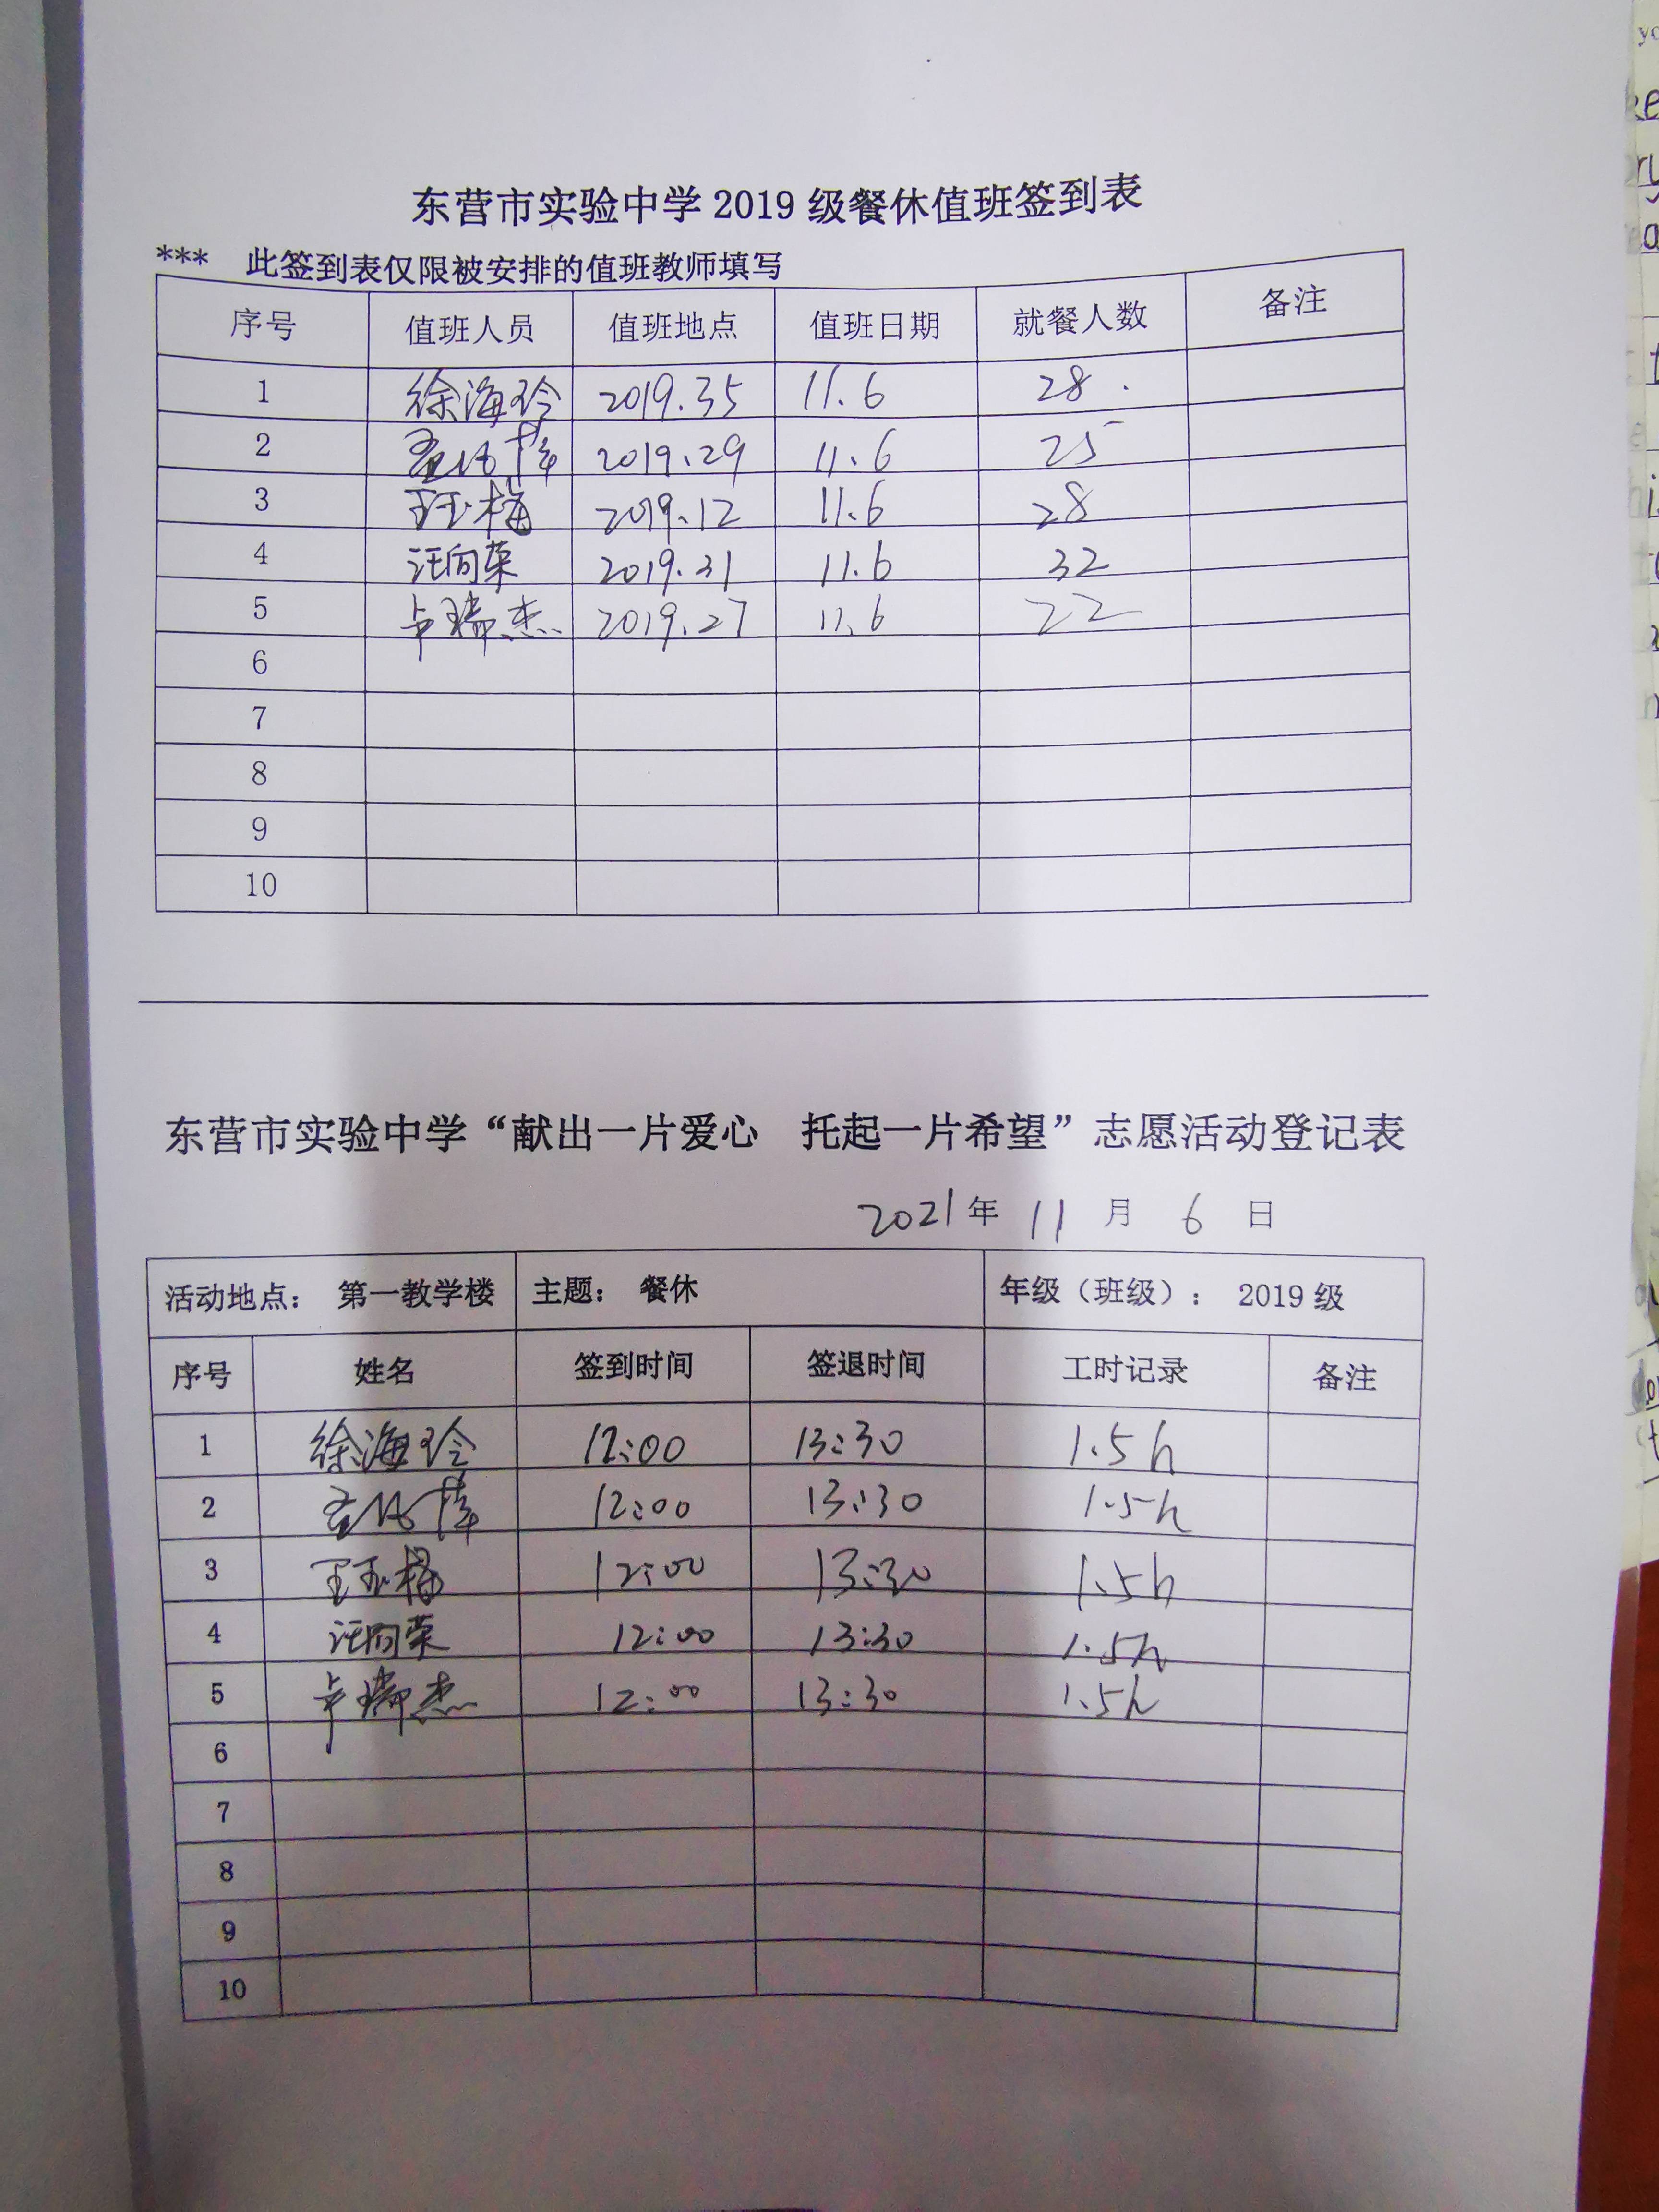 东营市实验中学 2019 级餐休值班签到表
*** 此签到表仅限被安排的值班教师填写
序号 值班人员 值班地点 值班日期 就餐人数 备注
1 徐海玲 2019.35 11.6 28.
2 2019.29 11.6 25
3 王玉梅 2019.12 11.6 28
4 汪向荣 2019.31 11.6 32
5 卢瑞杰 2019.27 11.6 22
6
7
8
9
10
东营市实验中学“献出一片爱心 托起一片希望”志愿活动登记表
2021年 11 月 6 日
活动地点： 第一教学楼 主题： 餐休 年级（班级）： 2019 级
序号 姓名 签到时间 签退时间 工时记录 备注
1 徐海玲 12:00 13:30 1.5h
2 12:00 13:30 1.5h
3 王玉梅 12:00 13:30 1.5h
4 汪向荣 12:00 13:30 1.5h
5 卢瑞杰 12:00 13:30 1.5h
6
7
8
9
10